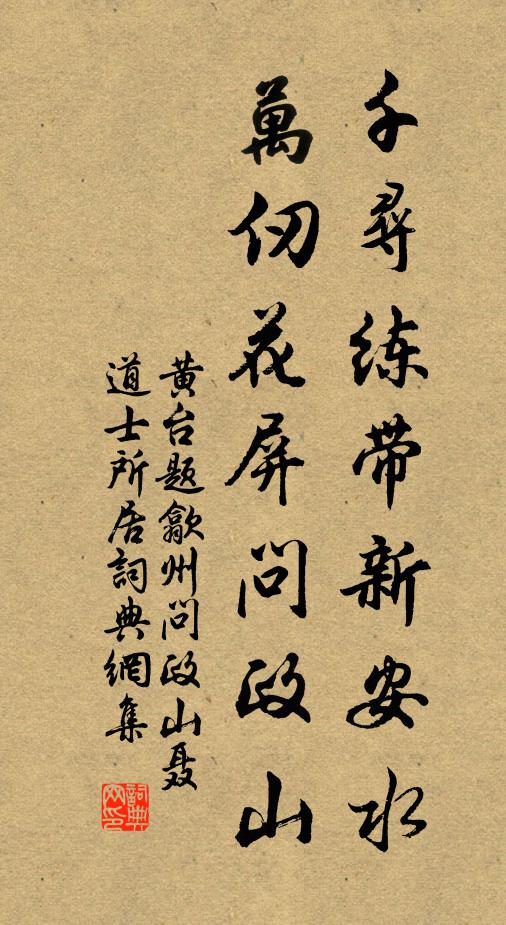 千尋练带新安水
萬仞花屏問政山
黄台题歙州問政山聂
道士所居詞典網集
詞典网印